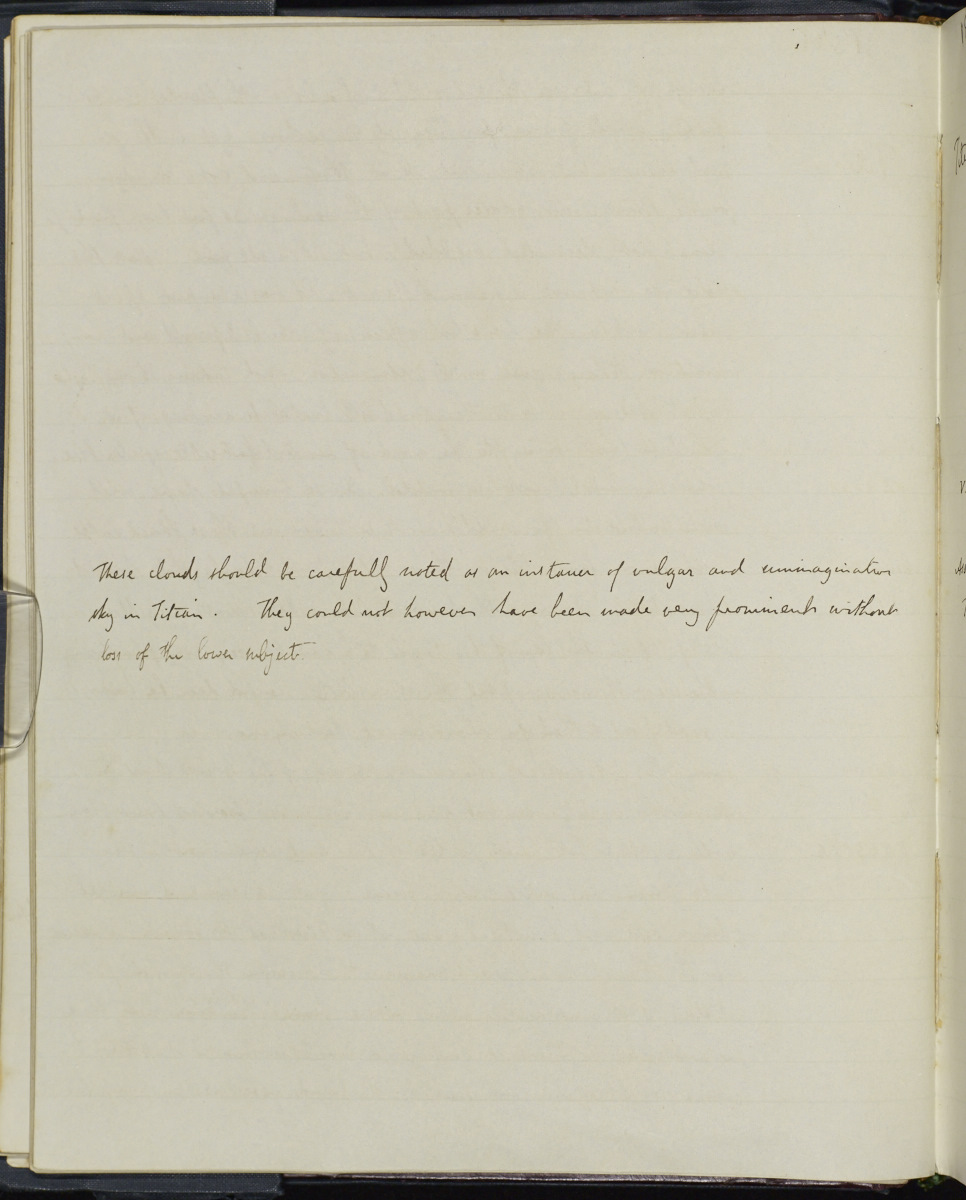 These clouds should be carefully noted as an instance of vulgar and unimaginative
sky in Titian. They could not however have been made very prominent without
loss of the lower subject.